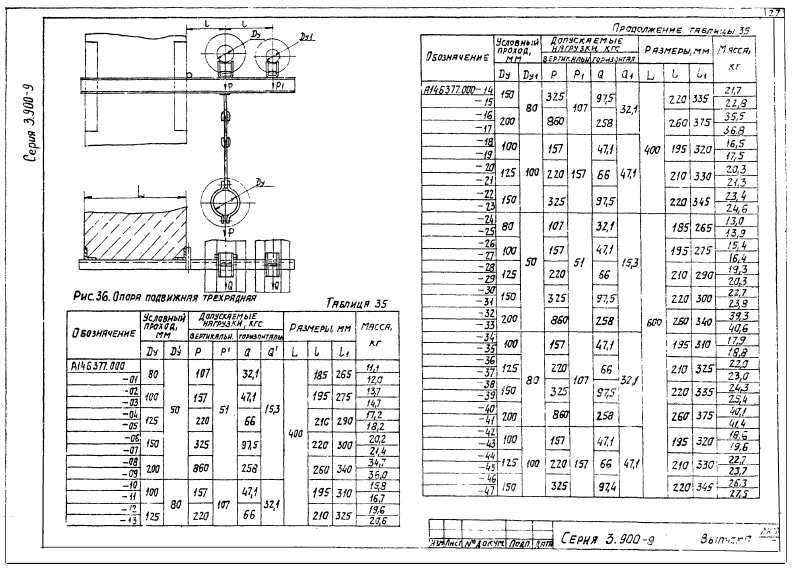 27
Серия 3.900-9
l l
Ду Ду1
Р Р1
Ду
L
Р
Q Q
Рис.36. Опора подвижная трехрядная
Таблица 35
Обозначение Условный проход, мм Допускаемые нагрузки, кгс Размеры, мм Масса, кг
вертикальн. горизонтальн.
Ду Ду' Р Р' Q Q' L l l1
А14Б377.000 80 50 107 51 32,1 15,3 400 185 265 11,1
-01 12,0
-02 100 157 47,1 195 275 13,7
-03 14,7
-04 125 220 66 210 290 17,2
-05 18,2
-06 150 325 97,5 220 300 20,2
-07 21,4
-08 200 860 258 260 340 34,7
-09 36,0
-10 100 80 157 107 47,1 32,1 195 310 15,8
-11 16,7
-12 125 220 66 210 325 19,6
-13 20,6
Продолжение таблицы 35
Обозначение Условный проход, мм Допускаемые нагрузки кгс Размеры, мм Масса, кг
вертикальн. горизонтал.
Ду Ду1 Р Р1 Q Q1 L l l1
А14Б377.000-14 150 80 325 107 97,5 32,1 400 220 335 21,7
-15 22,8
-16 200 860 258 260 375 35,5
-17 36,8
-18 100 100 157 157 47,1 47,1 195 320 16,5
-19 17,5
-20 125 220 66 210 330 20,3
-21 21,3
-22 150 325 97,5 220 345 23,4
-23 24,6
-24 80 50 107 51 32,1 15,3 600 185 265 13,0
-25 13,9
-26 100 157 47,1 195 275 15,4
-27 16,4
-28 125 220 66 210 290 19,3
-29 20,3
-30 150 325 97,5 220 300 22,7
-31 23,8
-32 200 860 258 260 340 39,3
-33 40,6
-34 100 80 157 107 47,1 32,1 195 310 17,9
-35 18,8
-36 125 220 66 210 325 22,0
-37 23,0
-38 150 325 97,5 220 335 24,3
-39 25,4
-40 200 860 258 260 375 40,1
-41 41,4
-42 100 100 157 157 47,1 47,1 195 320 18,6
-43 19,6
-44 125 220 66 210 330 22,7
-45 23,7
-46 150 325 97,4 220 345 26,3
-47 27,5
Изм Лист № докум. Подп. Дата
Серия 3.900-9 Выпуск